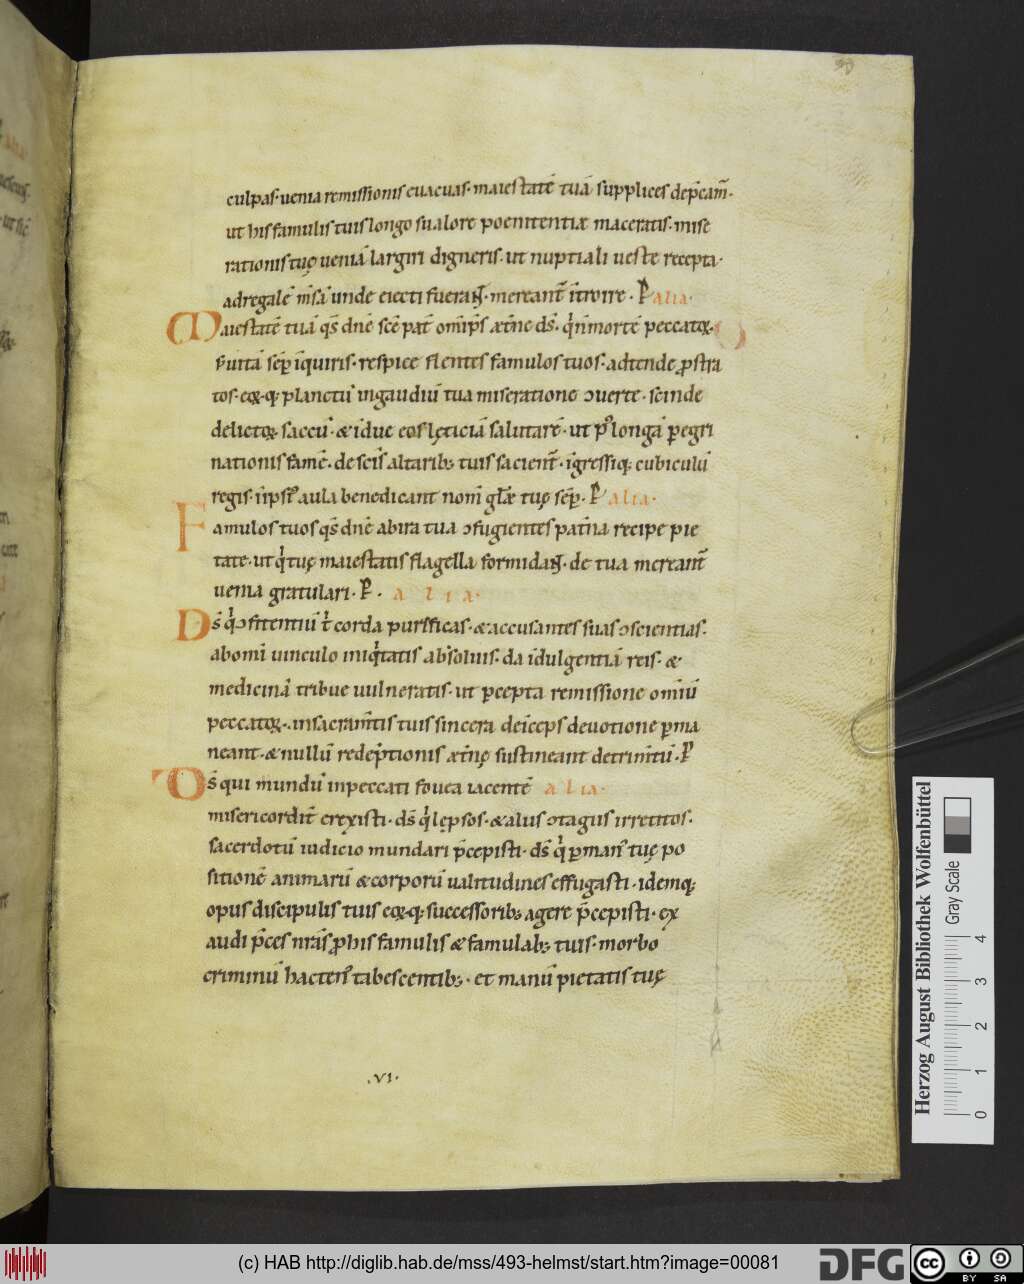 culpas· uenia remissionis euacuas· maiestatē tuā supplices dep̄cam̄·
ut his famulis tuis longo sualore poenitentiæ maceratis· mise
rationis tuę ueniā largiri digneris· ut nuptiali ueste recepta·
ad regalē m̄sā unde eiecti fuerañ· mereant̄ ītroire· P alia·
Maiestatē tuā qs̄ dn̄e sc̄e pat̄ om̄ip̄s æt̄ne ds̄· qͥ n̄ mortē peccatoꝝ·
s; uitā sēp īquiris· respice flentes famulos tuos· adtende ꝓstra
tos· eoꝝq; planctū in gaudiū tua miseratione ɔuerte· scinde
delictoꝝ saccū· & īdue eos lęticiā salutarē· ut pꝰ longā ꝑegri
nationis famē· de sc̄is altarib; tuis sacient̄· īgressiq; cubiculū
regis· in ip̄sͥ aula benedicant nom̄ gl̄æ tuę sēp· P alia·
Famulos tuos qs̄ dn̄e ab ira tua ɔfugientes pat̄na recipe pie
tate· ut qͥ tuę maiestatis flagella formidañ· de tua mereant̄
uenia gratulari· P· alia·
Ds̄ qͥ ɔfitentiū t̄ corda purificas· & accusantes suas ɔscientias·
ab om̄i uinculo iniqͥtatis absoluis· da īdulgentiā reis· &
medicinā tribue uulneratis· ut ꝑcepta remissione om̄iū
peccatoꝝ· in sacram̄tis tuis sincera deīceps deuotione ꝑma
neant· & nullū redēptionis æt̄nę sustineant detrim̄tū· P
Ds̄ qui mundū in peccati fouea iacentē alia·
misericordit̄ erexisti· ds̄ qͥ lęprosos· & aliis ɔtagiis irretitos·
sacerdotū iudicio mundari p̄cepisti· ds̄ qͥ ꝑ manꝰ tuę po
sitionē animarū & corporū ualitudines effugasti· idemq;
opus discipulis tuis eoꝝq; successorib; agere p̄cepisti· ex
audi p̄ces nr̄as ꝓ his famulis & famulab; tuis· morbo
criminū hactenꝰ tabescentib;· et manū pietatis tuę
·VI·
Herzog August Bibliothek Wolfenbüttel
Gray Scale
0 1 2 3 4
(c) HAB http://diglib.hab.de/mss/493-helmst/start.htm?image=00081
DFG
cc BY SA